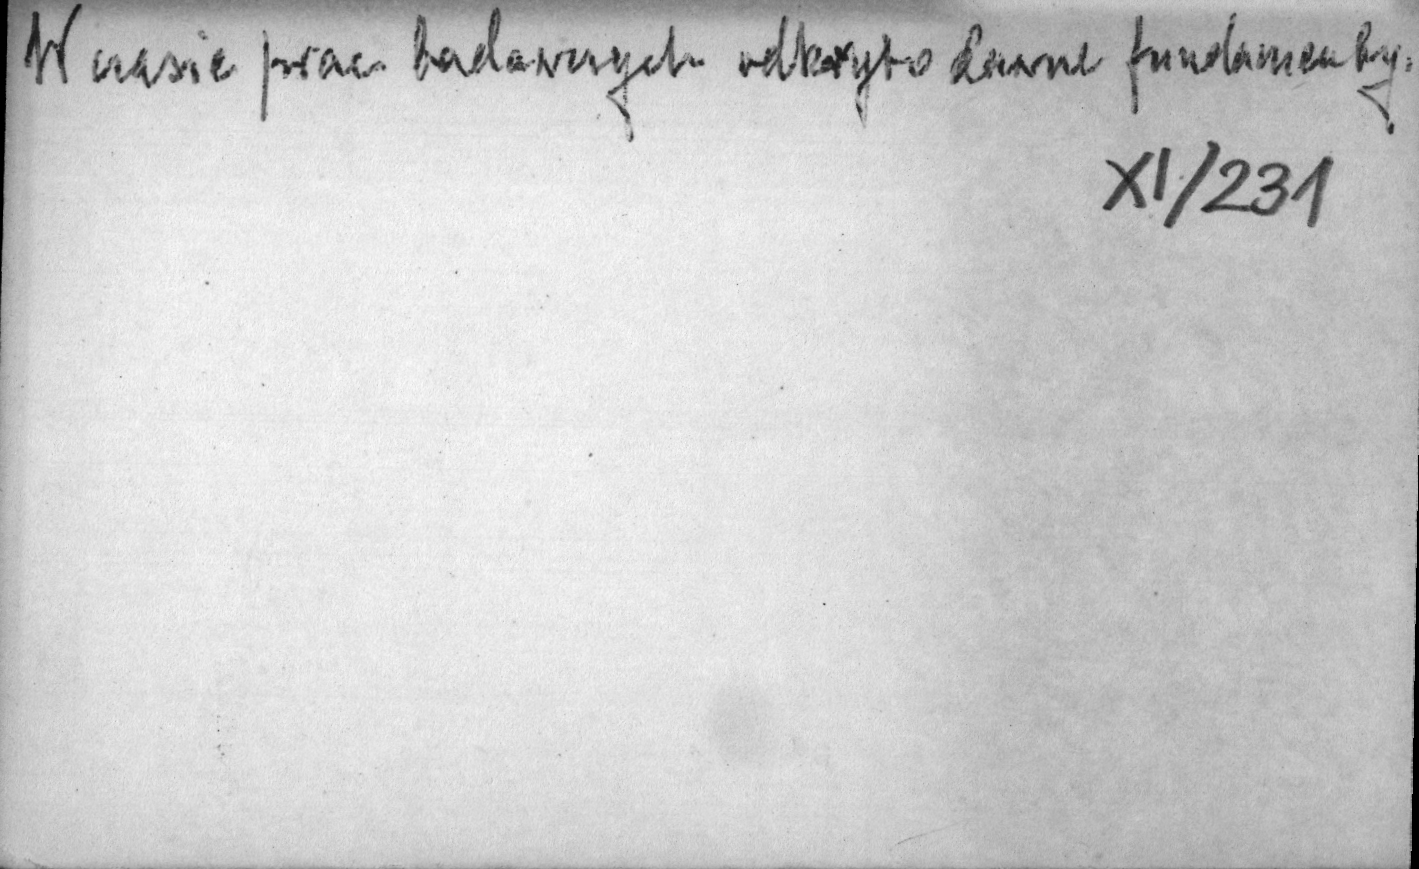 W czasie prac badawczych odkryto dawne fundamenty.
XI/231